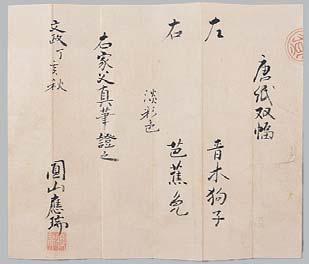 唐紙双幅
左 青木狗子
右 芭蕉兔
淡彩色
右家父真筆證之
文政丁亥秋
圓山應瑞